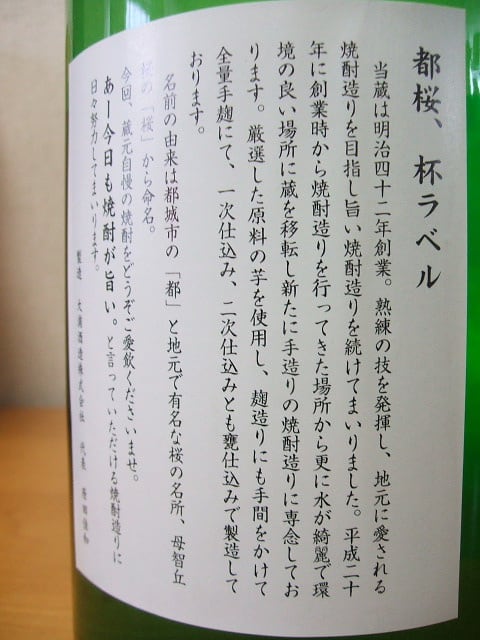 都桜、杯ラベル
当蔵は明治四十二年創業。熟練の技を発揮し、地元に愛される
焼酎造りを目指し旨い焼酎造りを続けてまいりました。平成二十
年に創業時から焼酎造りを行ってきた場所から更に水が綺麗で環
境の良い場所に蔵を移転し新たに手造りの焼酎造りに専念してお
ります。厳選した原料の芋を使用し、麹造りにも手間をかけて
全量手麹にて、一次仕込み、二次仕込みとも甕仕込みで製造して
おります。
名前の由来は都城市の「都」と地元で有名な桜の名所、母智丘
の「桜」から命名。
今回、蔵元自慢の焼酎をどうぞご愛飲くださいませ。
あー今日も焼酎が旨い。と言っていただける焼酎造りに
日々努力してまいります。
製造 大浦酒造株式会社 代表